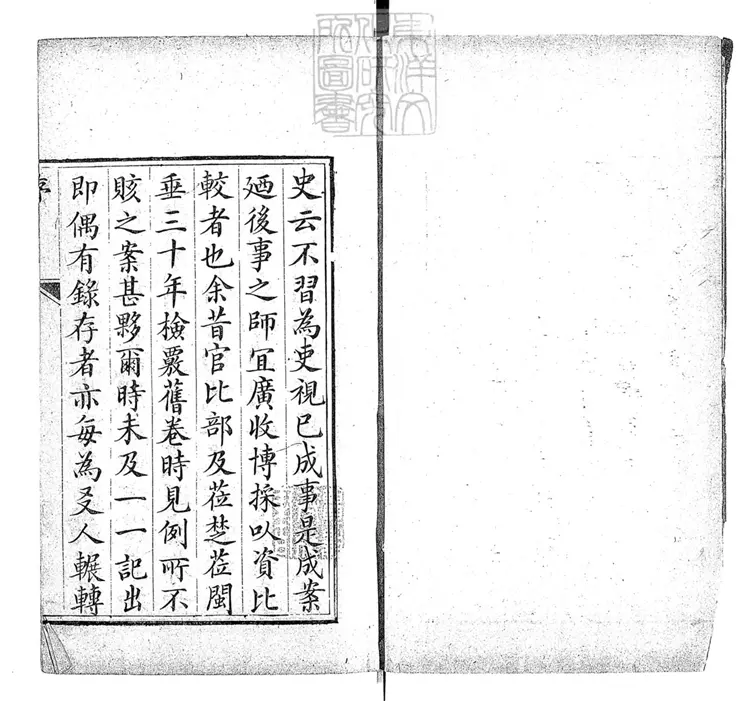 東洋文
化研究
所圖書
史云不習為吏視已成事是成案
廼後事之師宜廣收博採以資比
較者也余昔官比部及莅楚莅閩
垂三十年檢覈舊卷時見例所不
賅之案甚夥爾時未及一一記出
即偶有錄存者亦每為友人輾轉
序